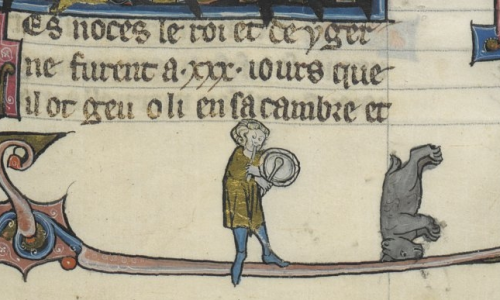 Es noces le roi et de yger
ne furent a·xxx· iours que
il ot geu o li en sa cambre et